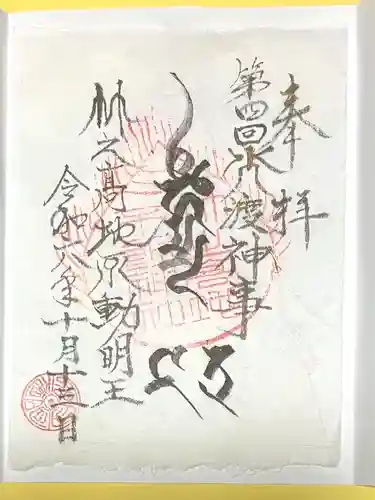 奉拝
第四回火渡神事
竹之高地不動明王
令和六年十月十三日